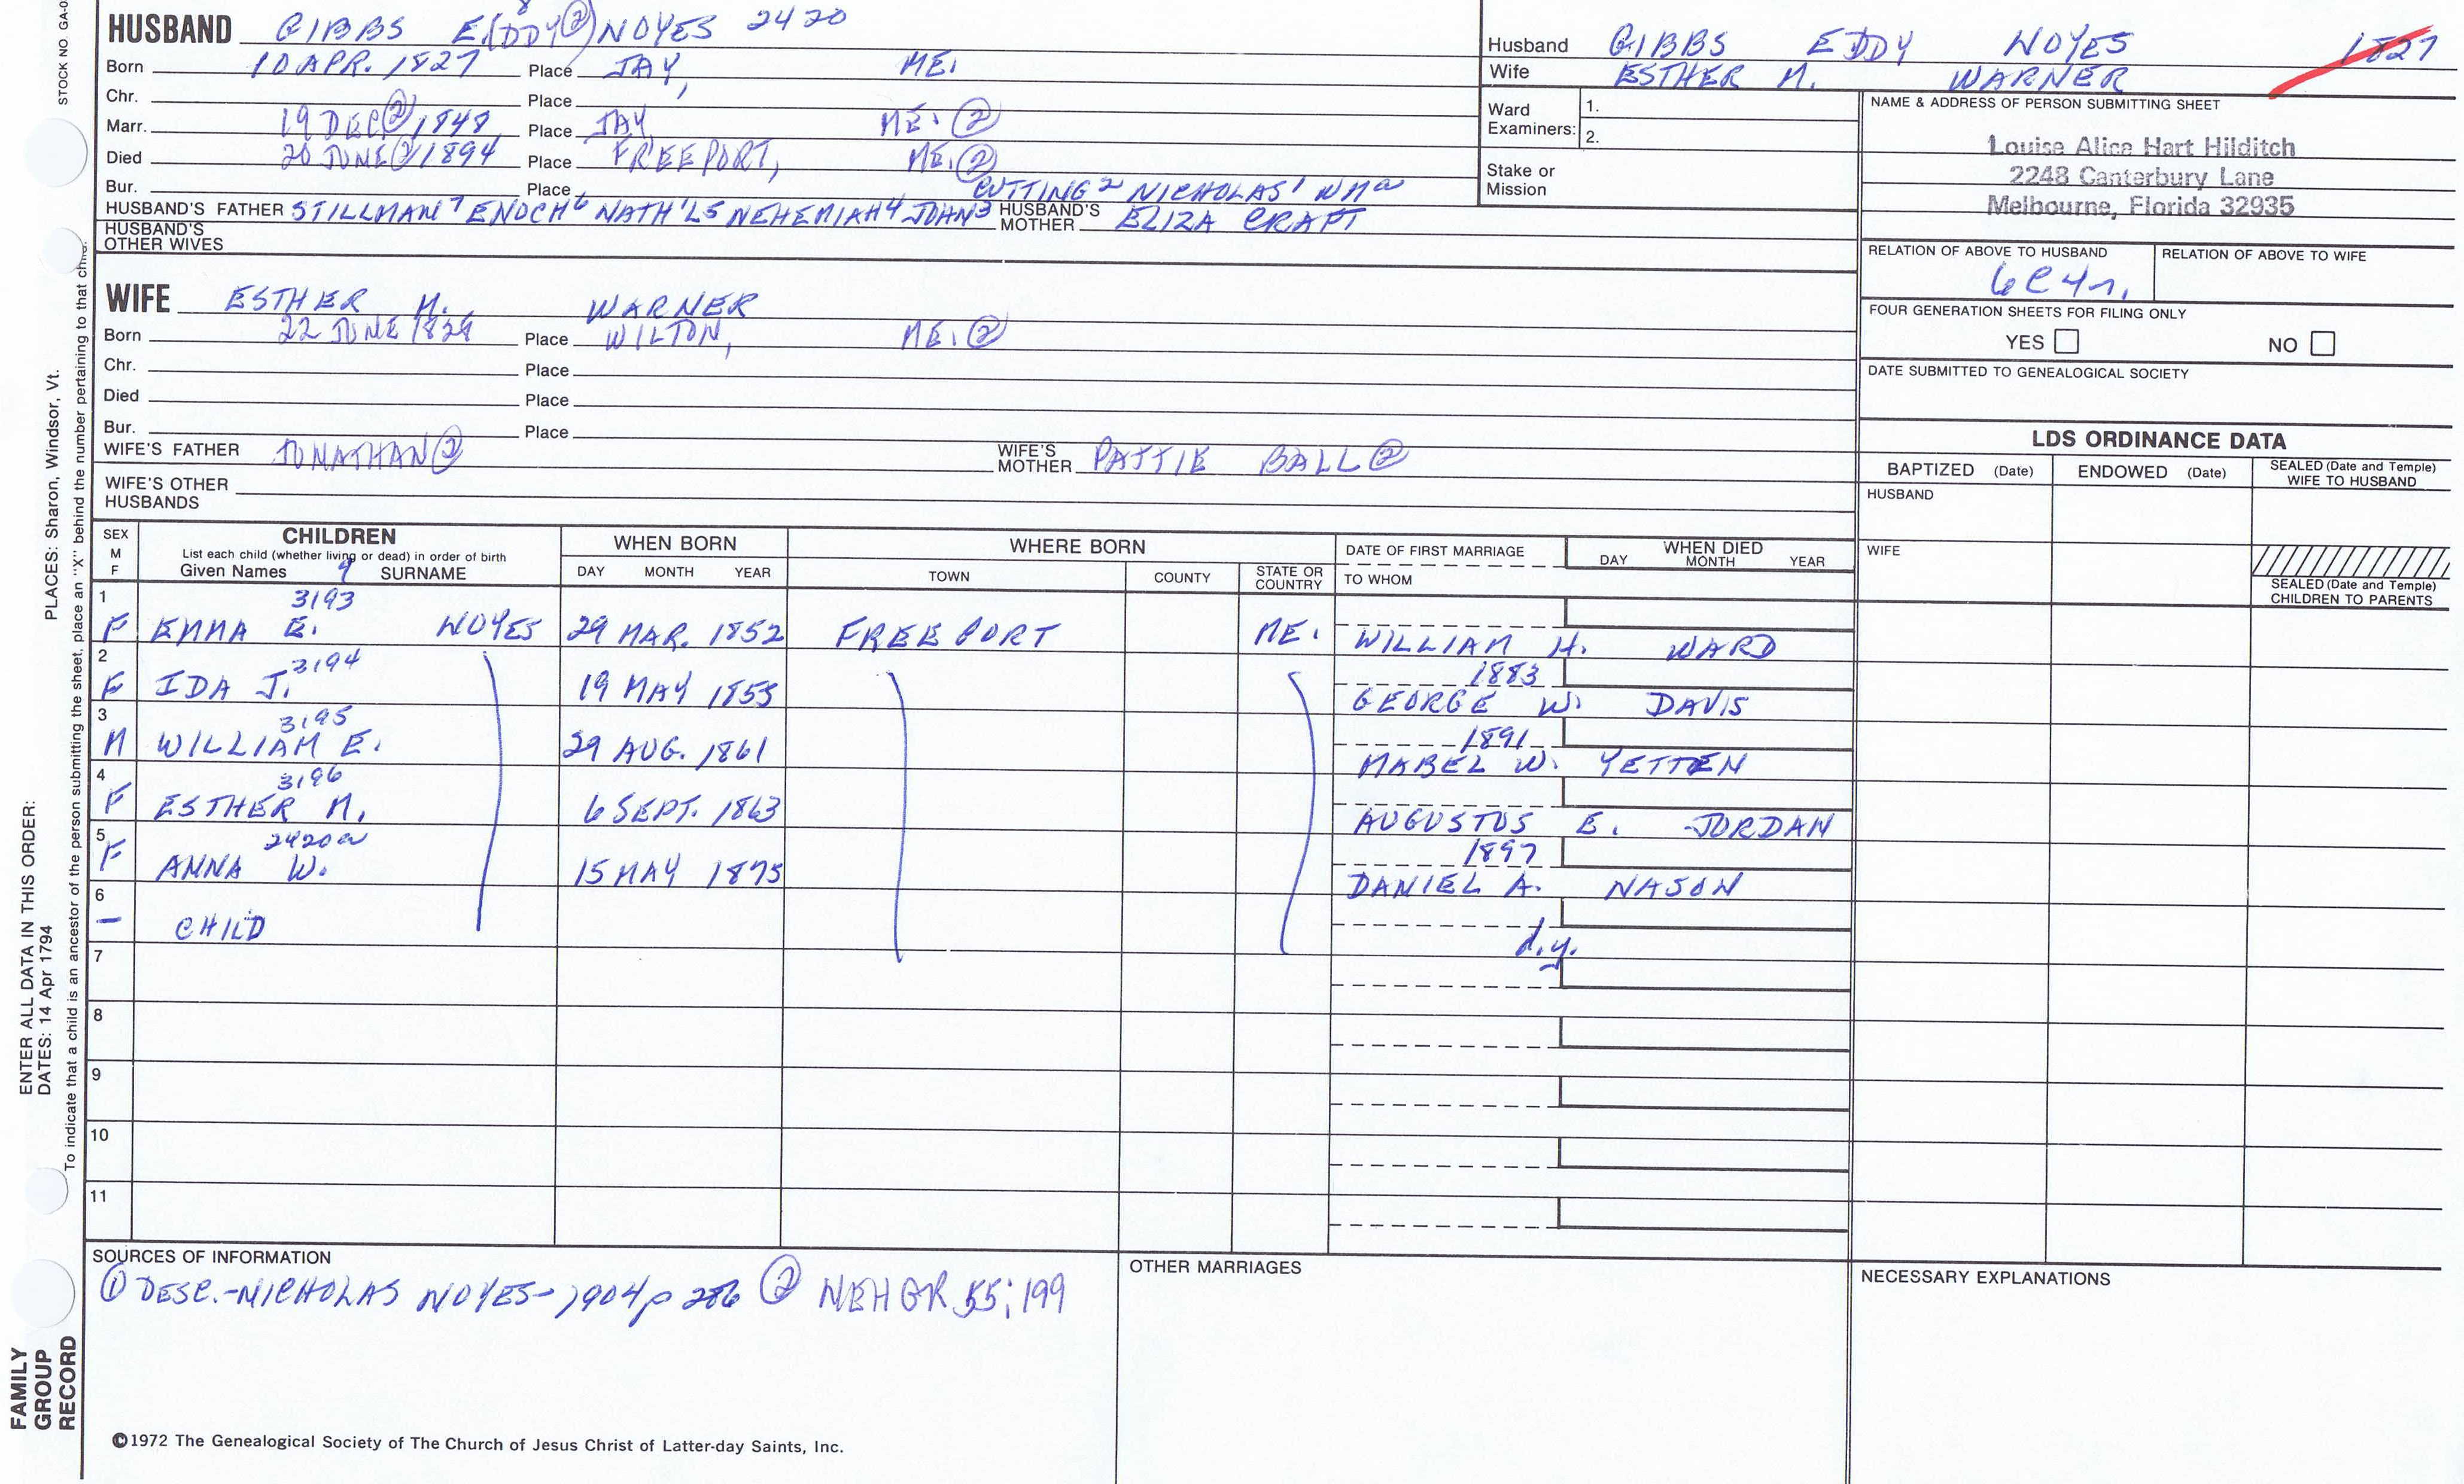 STOCK NO. GA-0
HUSBAND GIBBS E(DDY②) NOYES 2420
8
Born 10 APR. 1827 Place JAY, ME.
Chr. Place
Marr. 19 DEC② 1848 Place JAY ME. ②
Died 20 JUNE② 1894 Place FREEPORT, ME. ②
Bur. Place CUTTING 2 NICHOLAS 1
HUSBAND'S FATHER STILLMAN 7 ENOCH 6 NATH'L 5 NEHEMIAH 4 JOHN 3 HUSBAND'S MOTHER ELIZA CRAFT
HUSBAND'S OTHER WIVES
WIFE ESTHER M. WARNER
Born 22 JUNE 1829 Place WILTON, ME. ②
Chr. Place
Died Place
Bur. Place
WIFE'S FATHER JONATHAN② WIFE'S MOTHER PATTIE BALL②
WIFE'S OTHER HUSBANDS
Husband GIBBS EDDY NOYES 1827
Wife ESTHER M. WARNER
Ward Examiners: 1.
2.
Stake or Mission
NAME & ADDRESS OF PERSON SUBMITTING SHEET
Louise Alice Hart Hilditch
2248 Canterbury Lane
Melbourne, Florida 32935
RELATION OF ABOVE TO HUSBAND RELATION OF ABOVE TO WIFE
6C4r.
FOUR GENERATION SHEETS FOR FILING ONLY
YES NO
DATE SUBMITTED TO GENEALOGICAL SOCIETY
LDS ORDINANCE DATA
BAPTIZED (Date) ENDOWED (Date) SEALED (Date and Temple) WIFE TO HUSBAND
HUSBAND
WIFE
SEALED (Date and Temple) CHILDREN TO PARENTS
SEX M F CHILDREN WHEN BORN WHERE BORN DATE OF FIRST MARRIAGE WHEN DIED
List each child (whether living or dead) in order of birth
Given Names 9 SURNAME DAY MONTH YEAR TOWN COUNTY STATE OR COUNTRY TO WHOM DAY MONTH YEAR
1 3193
F EMMA E. NOYES 29 MAR. 1852 FREEPORT ME. WILLIAM H. WARD
2 3194 1883
F IDA J. 19 MAY 1855 GEORGE W. DAVIS
3 3195 1891
M WILLIAM E. 29 AUG. 1861 MABEL W. YETTEN
4 3196
F ESTHER M. 6 SEPT. 1863 AUGUSTUS E. JORDAN
5 2420a 1897
F ANNA W. 15 MAY 1875 DANIEL A. NASON
6
— CHILD d.y.
7
8
9
10
11
SOURCES OF INFORMATION
① DESC.-NICHOLAS NOYES-1904 p 286 ② NEHGR 55; 199
OTHER MARRIAGES
NECESSARY EXPLANATIONS
©1972 The Genealogical Society of The Church of Jesus Christ of Latter-day Saints, Inc.
PLACES: Sharon, Windsor, Vt.
ENTER ALL DATA IN THIS ORDER:
DATES: 14 Apr 1794
To indicate that a child is an ancestor of the person submitting the sheet, place an "X" behind the number pertaining to that child.
FAMILY
GROUP
RECORD